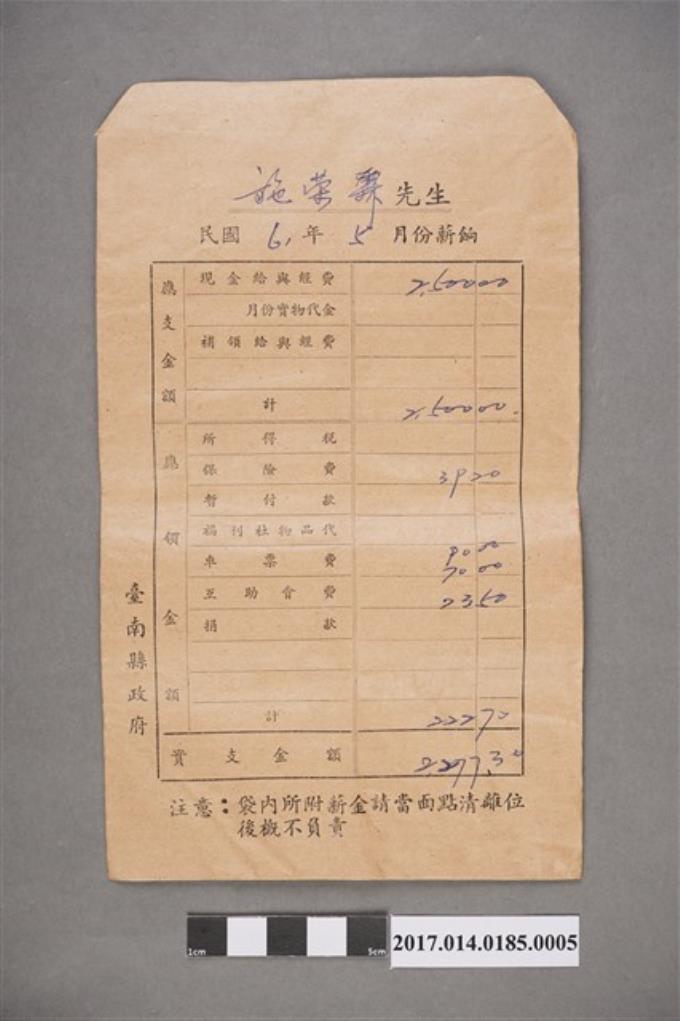 施荣 先生
民國 61 年 5 月份薪餉
應支金額
現金給與經費 2,500 00
月份實物代金
補領給與經費
計 2,500 00
應領金額
所得稅
保險費 39 20
暫付款
福利社物品代 90 00
車票費 70 00
互助會費 23 50
捐款
計 222 70
實支金額 2,277.30
臺南縣政府
注意：袋內所附薪金請當面點清離位
後概不負責
1cm 5cm
2017.014.0185.0005